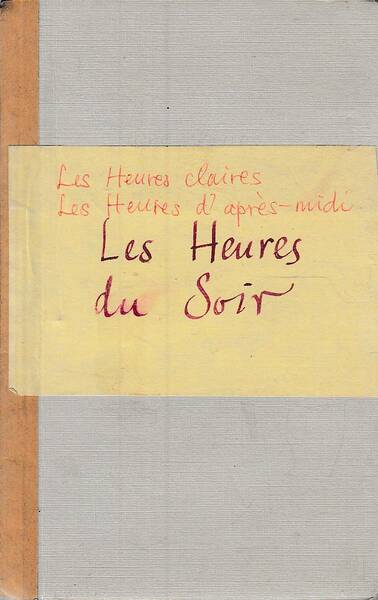 Les Heures claires
Les Heures d'après-midi
Les Heures
du Soir